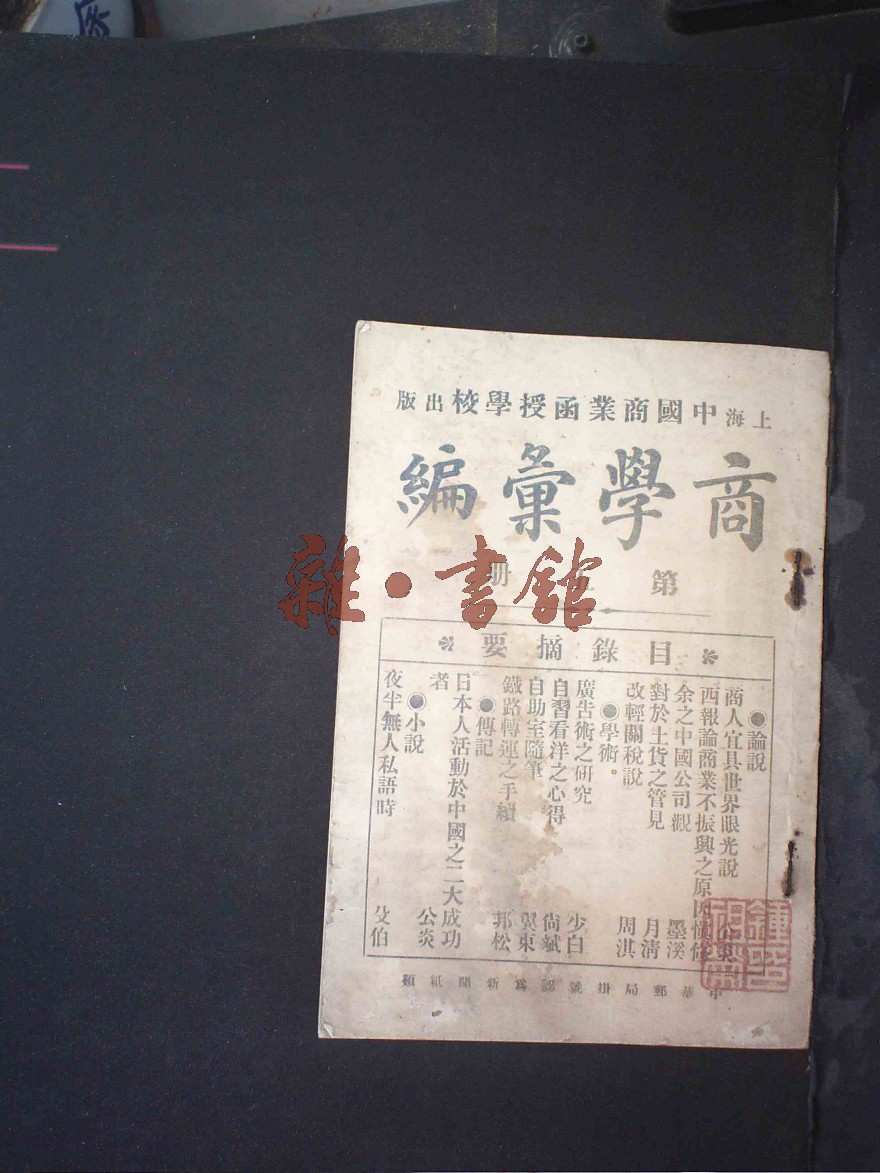 上海中國商業函授學校出版
商學彙編
第五冊
目錄摘要
●論說
商人宜具世界眼光說
西報論商業不振興之原因
余之中國公司觀 墨溪
對於土貨之管見 月清
改輕關稅說 周淇
●學術。
廣告術之研究 少白
自習看洋之心得 尙斌
自助室隨筆 翼東
鐵路轉運之手續 邦松
●傳記
日本人活動於中國之二大成功
者 公炎
●小說
夜半無人私語時 殳伯
中華郵局掛號認爲新聞紙類
雜·書館